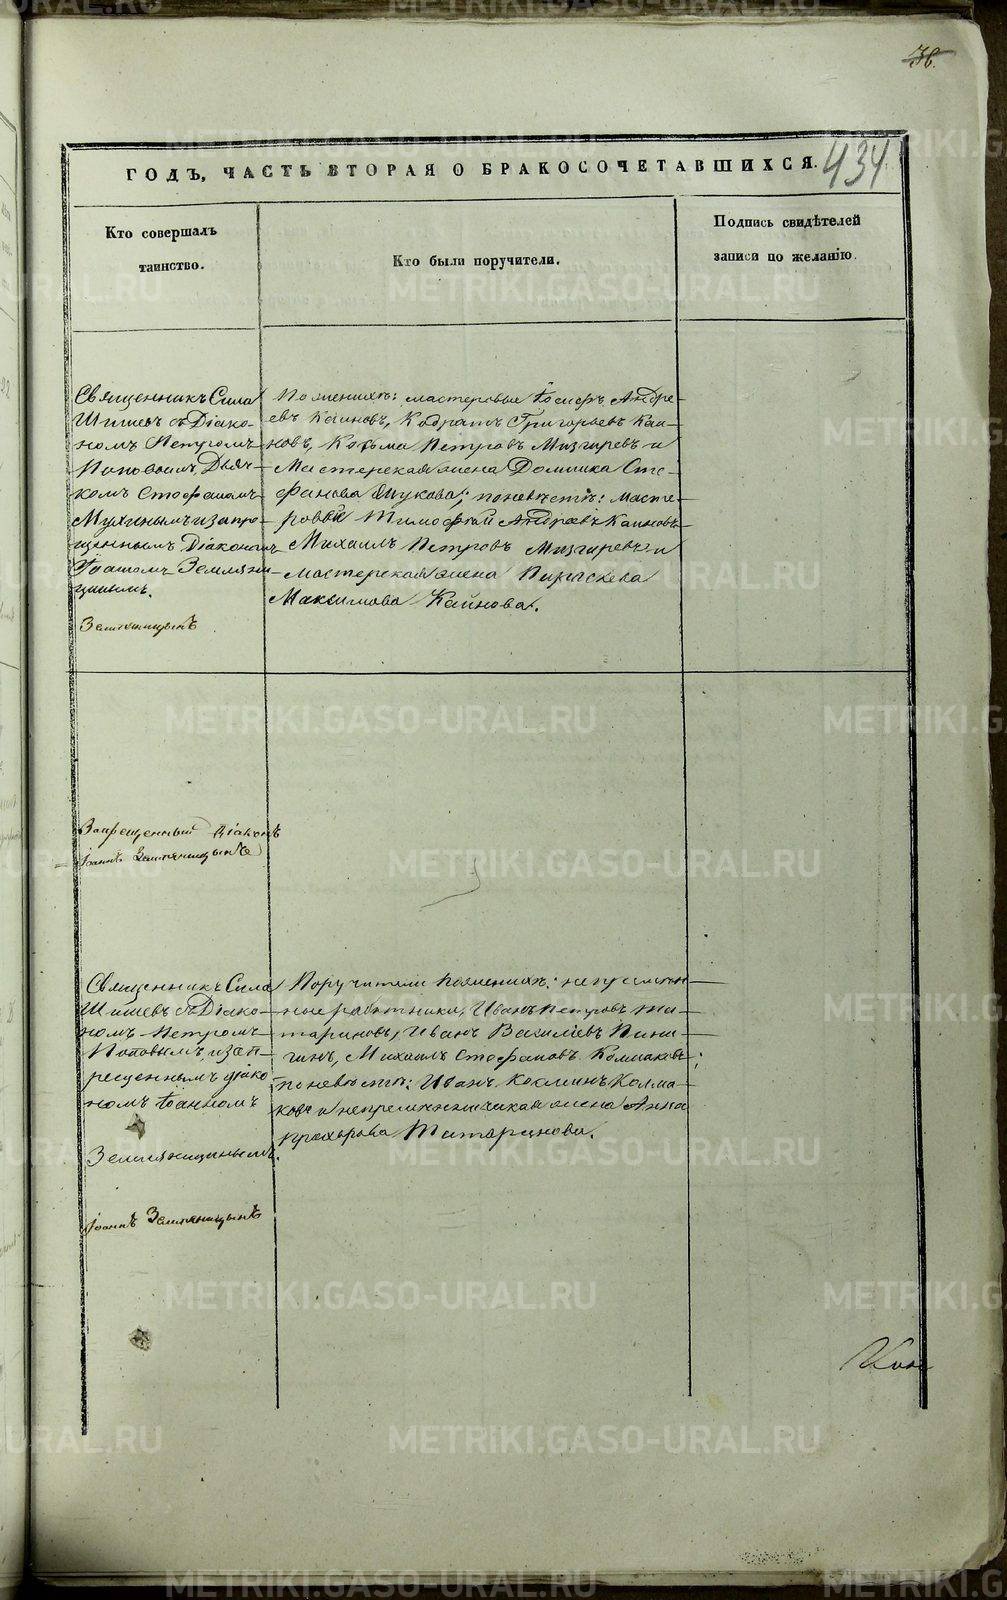 36.
434
ГОДЪ, ЧАСТЬ ВТОРАЯ О БРАКОСОЧЕТАВШИХСЯ.
Кто совершалъ
таинство.
Кто были поручители.
Подпись свидѣтелей
записи по желанію.
Священникъ Сила
Шишевъ съ Діако-
номъ Петромъ
Поповымъ, Дьяч-
комъ Стефаномъ
Мухинымъ и запре-
щеннымъ Діакономъ
Іоанномъ Земляни-
цинымъ.
Земляницынъ
По женихѣ: мастеровые Іосифъ Андре-
евъ Каиновъ, Кодратъ Григорьевъ Каи-
новъ, Козьма Петровъ Мизгиревъ и
Мастерская жена Домника Сте-
фанова Жукова; по невѣстѣ: масте-
ровые Тимофей Андреевъ Каиновъ
Михаилъ Петровъ Мизгиревъ и
мастерская жена Параскева
Максимова Каинова.
Запрещенный Діаконъ
Іоаннъ Земляницынъ
Священникъ Сила
Шишевъ съ Діако-
номъ Петромъ
Поповымъ, и зап-
рещеннымъ діако-
номъ Іоанномъ
Земляницинымъ.
Іоаннъ Земляницынъ
Поручители по женихѣ: непремѣн-
ные работники, Иванъ Петровъ Та-
тариновъ, Иванъ Василіевъ Пини-
гинъ, Михаилъ Стефановъ Колмаковъ;
по невѣстѣ: Иванъ Козминъ Колма-
ковъ и непременническая жена Анна
Прохорова Татаринова.
METRIKI.GASO-URAL.RU